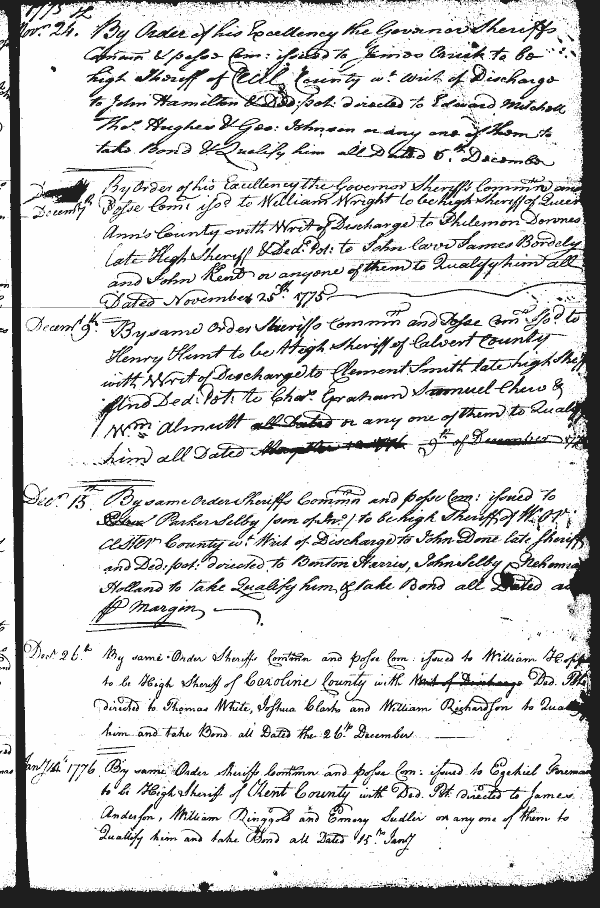 1775
Novr. 24. By Order of his Excellency the Governor Sheriffs
Commn & posse Com: issued to James to be
high Sheriff of Cecil County wt. Writ of Discharge
to John Hamilton & Ded: pot: directed to Edward Mitchell
Thos. Hughes & Geo: Johnson or any one of them to
take Bond & Qualify him all Dated 6th. December
Decemr. 7th By Order of his Excellency the Governor Sheriffs Commn and
Posse Com: issd to William Wright to be high Sheriff of Queen
Ann's County with Writ of Discharge to Philemon Downes
late High Sheriff & Ded: Pot: to John James Bordely
and John Kent or any one of them to Qualify him all
Dated November 25th. 1775
Decemr. 9th. By same Order Sheriffs Commn and Posse Com: Issd to
Henry Hunt to be High Sheriff of Calvert County
with Writ of Discharge to Clement Smith late high Sheff
And Ded: Pot: to Chas. Graham Samuel Chew &
Wm Allnutt all Dated or any one of them to Qualify
him all Dated 9th of December 1775
Decr. 15th By same Order Sheriffs Commn and posse Com: issued to
Parker Selby (son of Jno:) to be high Sheriff of Wor
cester County wt. Writ of Discharge to John Done late Sheriff
and Ded: pot: directed to Benton Harris, John Selby Nehemia
Holland to take Qualify him, & take Bond all Dated as
pr Margin
Decr 26th By same Order Sheriffs Commn and posse Com: issued to William Hopp
to be High Sheriff of Caroline County with Writ of Discharge Ded. Pot.
directed to Thomas White, Joshua Clark and William Richardson to Qualify
him and take Bond all Dated the 26th December
Jany 1776 By same Order Sheriffs Commn and posse Com: issued to Ezekiel Foreman
to be High Sheriff of Kent County with Ded. Pot directed to James
Anderson, William Ringgold and Emory Sudler or any one of them to
Qualify him and take Bond all Dated 15th Jany